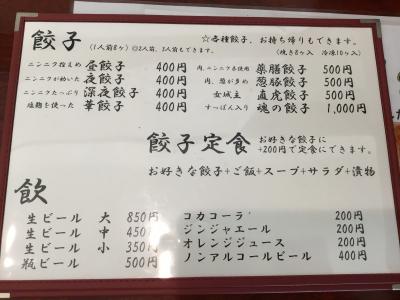 餃子
(1人前8ヶ)◎2人前、3人前もできます。
☆各種餃子、お持ち帰りもできます。
(焼き8ヶ入 冷凍10ヶ入)
ニンニク控えめ 昼餃子 400円
ニンニクが効いた 夜餃子 400円
ニンニクたっぷり 深夜餃子 400円
塩麹を使った 華餃子 400円
肉、ニンニク不使用 薬膳餃子 500円
肉、葱が多め 葱豚餃子 500円
女城主 直虎餃子 500円
すっぽん入り 魂の餃子 1,000円
餃子定食
お好きな餃子に
+200円で定食にできます。
お好きな餃子+ご飯+スープ+サラダ+漬物
飲
生ビール 大 850円
生ビール 中 450円
生ビール 小 350円
瓶ビール 500円
コカコーラ 200円
ジンジャエール 200円
オレンジジュース 200円
ノンアルコールビール 400円